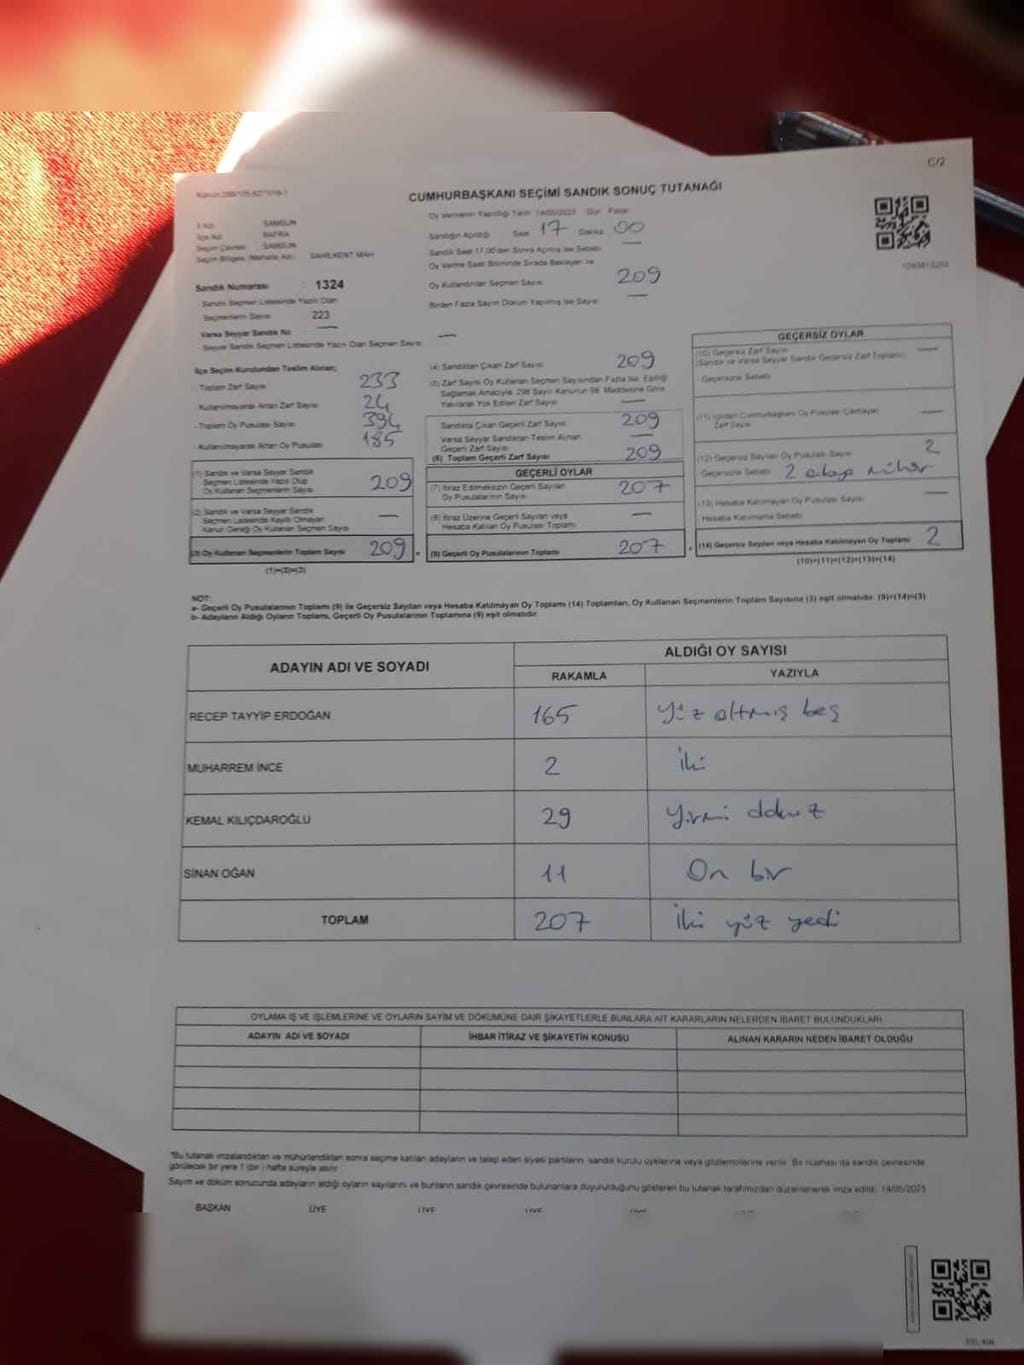 C/2
Kanun:298/105-6271/18-1
CUMHURBAŞKANI SEÇİMİ SANDIK SONUÇ TUTANAĞI
Oy Vermenin Yapıldığı Tarih: 14/05/2023 Gün: Pazar
İl Adı SAMSUN
Sandığın Açıldığı Saat 17 Dakika 00
İlçe Adı BAFRA
Seçim Çevresi SAMSUN
Sandık Saat 17.00'den Sonra Açılmış İse Sebebi —
Seçim Bölgesi (Mahalle Adı) SAHİLKENT MAH
Oy Verme Saati Bitiminde Sırada Bekleyen ve
Oy Kullandırılan Seçmen Sayısı 209
Sandık Numarası : 1324
- Sandık Seçmen Listesinde Yazılı Olan
Seçmenlerin Sayısı 223
Birden Fazla Sayım Döküm Yapılmış İse Sayısı —
Varsa Seyyar Sandık No —
Seyyar Sandık Seçmen Listesinde Yazılı Olan Seçmen Sayısı —
İlçe Seçim Kurulundan Teslim Alınan;
- Toplam Zarf Sayısı 233
- Kullanılmayarak Artan Zarf Sayısı 24
- Toplam Oy Pusulası Sayısı 394
- Kullanılmayarak Artan Oy Pusulası 185
(1) Sandık ve Varsa Seyyar Sandık
Seçmen Listesinde Yazılı Olup
Oy Kullanan Seçmenlerin Sayısı 209
(2) Sandık ve Varsa Seyyar Sandık
Seçmen Listesinde Kayıtlı Olmayan
Kanun Gereği Oy Kullanan Seçmen Sayısı —
(3) Oy Kullanan Seçmenlerin Toplam Sayısı 209
(1)+(2)=(3)
(4) Sandıktan Çıkan Zarf Sayısı 209
(5) Zarf Sayısı Oy Kullanan Seçmen Sayısından Fazla İse, Eşitliği
Sağlamak Amacıyla, 298 Sayılı Kanunun 98. Maddesine Göre
Yakılarak Yok Edilen Zarf Sayısı —
Sandıkta Çıkan Geçerli Zarf Sayısı 209
Varsa Seyyar Sandıktan Teslim Alınan
Geçerli Zarf Sayısı —
(6) Toplam Geçerli Zarf Sayısı 209
GEÇERLİ OYLAR
(7) İtiraz Edilmeksizin Geçerli Sayılan
Oy Pusulalarının Sayısı 207
(8) İtiraz Üzerine Geçerli Sayılan veya
Hesaba Katılan Oy Pusulası Toplamı —
(9) Geçerli Oy Pusulalarının Toplamı 207
GEÇERSİZ OYLAR
(10) Geçersiz Zarf Sayısı —
(Sandık ve Varsa Seyyar Sandık Geçersiz Zarf Toplamı)
- Geçersizlik Sebebi
(11) İçinden Cumhurbaşkanı Oy Pusulası Çıkmayan
Zarf Sayısı —
(12) Geçersiz Sayılan Oy Pusulası Sayısı 2
Geçersizlik Sebebi 2 adaya mühür
(13) Hesaba Katılmayan Oy Pusulası Sayısı —
Hesaba Katılmama Sebebi
(14) Geçersiz Sayılan veya Hesaba Katılmayan Oy Toplamı 2
(10)+(11)+(12)+(13)=(14)
NOT:
a- Geçerli Oy Pusulalarının Toplamı (9) ile Geçersiz Sayılan veya Hesaba Katılmayan Oy Toplamı (14) Toplamları, Oy Kullanan Seçmenlerin Toplam Sayısına (3) eşit olmalıdır. (9)+(14)=(3)
b- Adayların Aldığı Oyların Toplamı, Geçerli Oy Pusulalarının Toplamına (9) eşit olmalıdır.
ADAYIN ADI VE SOYADI ALDIĞI OY SAYISI
RAKAMLA YAZIYLA
RECEP TAYYİP ERDOĞAN 165 Yüz altmış beş
MUHARREM İNCE 2 İki
KEMAL KILIÇDAROĞLU 29 Yirmi dokuz
SİNAN OĞAN 11 On bir
TOPLAM 207 İki yüz yedi
OYLAMA İŞ VE İŞLEMLERİNE VE OYLARIN SAYIM VE DÖKÜMÜNE DAİR ŞİKAYETLERLE BUNLARA AİT KARARLARIN NELERDEN İBARET BULUNDUKLARI
ADAYIN ADI VE SOYADI İHBAR İTİRAZ VE ŞİKAYETİN KONUSU ALINAN KARARIN NEDEN İBARET OLDUĞU
"Bu tutanak imzalandıktan ve mühürlendikten sonra seçime katılan adayların ve talep eden siyasi partilerin sandık kurulu üyelerine veya gözlemcilerine verilir. Bir nüshası da sandık çevresinde
görülecek bir yere 1 (bir) hafta süreyle asılır.
Sayım ve döküm sonucunda adayların aldığı oyların sayılarını ve bunların sandık çevresinde bulunanlara duyurulduğunu gösteren bu tutanak tarafımızdan düzenlenerek imza edildi. 14/05/2023
BAŞKAN ÜYE ÜYE ÜYE